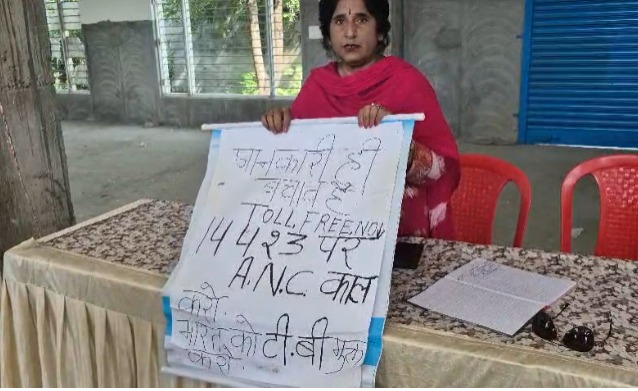 जानकारी ही
बचाव है
TOLL FREE NO
14423 पर
A.N.C. काल
करो.
भारत को टी.बी मुक्त
करो.